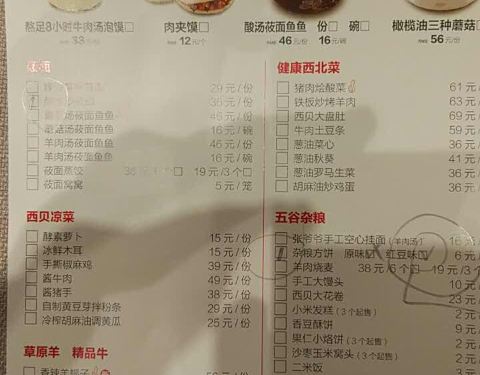 熬足8小时牛肉汤泡馍□ 肉夹馍□ 酸汤莜面鱼鱼 份□ 碗□ 橄榄油三种蘑菇□
RMB 33元/份 RMB 12元/个 RMB 46元/份 16元/碗 RMB 56元/份
健康西北菜
29元/份
36元/份
莜面鱼鱼 46元/份
蘑菇汤莜面鱼鱼 16元/碗
羊肉汤莜面鱼鱼 46元/份
羊肉汤莜面鱼鱼 16元/碗
莜面蒸饺 19元/3个□
莜面窝窝 5元/笼
猪肉烩酸菜 61元/
铁板炒烤羊肉 63元/
西贝大盘肚 69元/
牛肉土豆条 59元/
葱油菜心 36元/
葱油秋葵 41元/
葱油罗马生菜 36元/
胡麻油炒鸡蛋 36元/
西贝凉菜
酵素萝卜 15元/份
冰鲜木耳 15元/份
手撕椒麻鸡 39元/份
酱牛肉 49元/份
酱猪手 38元/份
自制黄豆芽拌粉条 29元/份
冷榨胡麻油调黄瓜 25元/份
五谷杂粮
张爷爷手工空心挂面(羊肉汤) 16元
杂粮方饼 原味 红豆味 6元
羊肉烧麦 38元/6个□ 19元/3个
手工大馒头 10元
西贝大花卷 23元
小米发糕(3个起售) 2元
香豆酥饼 9元
果仁小烙饼(3个起售) 2元
沙枣玉米窝头(3个起售) 2元
二米饭 3元
草原羊 精品牛